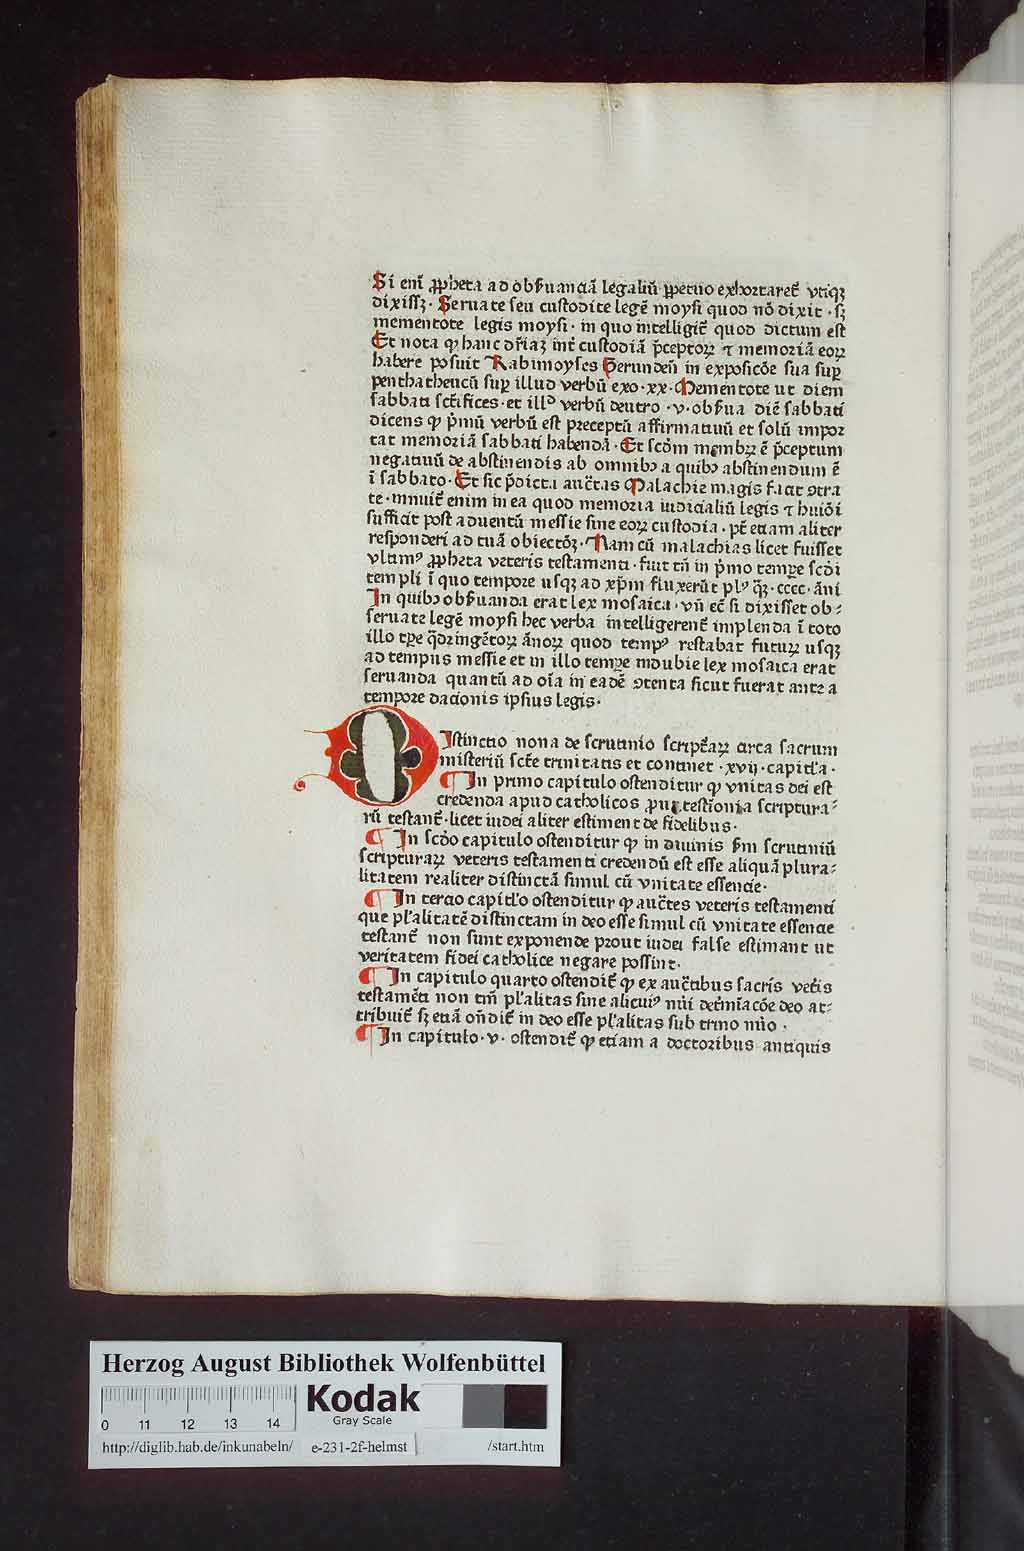 Si em̄ ꝓpheta ad obẜuanciā legaliū ꝑpetuo exhortaret᷑ vtiqꝫ
dixissꝫ · Seruate seu custodite legē moysi quod nō dixit · sꝫ
mementote legis moysi · in quo intelligit᷑ quod dictum est
Et nota ꝙ hanc dr̄iaꝫ int᷑ custodiā p̄ceptoꝝ ⁊ memoriā eoꝝ
habere posuit Rabimoyses Gerundeñ in exposicōe sua suꝑ
penthatheucū suꝑ illud verbū exo · xx · Mementote ut diem
sabbati sct̄ifices · et illᵈ verbū deutro · v · obẜua diē sabbati
dicens ꝙ p̄mū verbū est preceptū affirmatiuū et solū impor
tat memoriā sabbati habendā · Et scd̄m membꝝ ē p̄ceptum
negatiuū de abstinendis ab omnibꝫ a quibꝫ abstinendum ē
ī sabbato · Et sic p̄dicta auct̄as Malachie magis facit ꝯtra
te · innuit᷑ enim in ea quod memoria iudicialiū legis ⁊ huiōi
sufficit post aduentū messie sine eoꝝ custodia · pt̄ etiam aliter
responderi ad tuā obiectōꝫ · Nam cū malachias licet fuisset
vltimꝰ ꝓpheta veteris testamenti · fuit tn̄ in p̄mo tempe scd̄i
templi ī quo tempore usqꝫ ad xp̄m fluxerūt plꝰ q̄ꝫ · cccc · āni
In quibꝫ obẜuanda erat lex mosaica · vn̄ ec̄ si dixisset ob⸗
seruate legē moysi hec verba intelligerent᷑ implenda ī toto
illo tꝑe q̄dringētoꝝ ānoꝝ quod tempꝰ restabat futuꝝ usqꝫ
ad tempus messie et in illo tempe indubie lex mosaica erat
seruanda quantū ad oīa in eadē ꝯtenta sicut fuerat ante a
tempore dacionis ipsius legis ·
DIstinctio nona de scrutinio script᷑aꝝ circa sacrum
misteriū sct̄e trinitatis et continet · xvij · capitl'a ·
¶ In primo capitulo ostenditur ꝙ vnitas dei est
credenda apud catholicos ꝓut testīonia scriptura⸗
rū testant᷑ · licet iudei aliter estiment de fidelibus ·
¶ In scd̄o capitulo ostenditur ꝙ in diuinis ẜm scrutiniū
scripturaꝝ veteris testamenti credendū est esse aliquā plura⸗
litatem realiter distinctā simul cū vnitate essencie ·
¶ In tercio capitl'o ostenditur ꝙ auct̄es veteris testamenti
que pl'alitatē distinctam in deo esse simul cū vnitate essencie
testant᷑ non sunt exponende prout iudei false estimant ut
veritatem fidei catholice negare possint ·
¶ In capitulo quarto ostendit᷑ ꝙ ex auct̄ibus sacris vet᷑is
testamēti non tm̄ pl'alitas sine alicuiꝰ nūi det᷑mīacōe deo at⸗
tribuit᷑ sꝫ etiā on̄dit᷑ in deo esse pl'alitas sub trino nūo ·
¶ In capitulo · v · ostendit᷑ ꝙ etiam a doctoribus antiquis
Herzog August Bibliothek Wolfenbüttel
Kodak
Gray Scale
0 11 12 13 14
http://diglib.hab.de/inkunabeln/ e-231-2f-helmst /start.htm